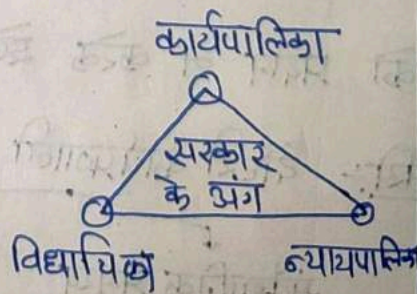 कार्यपालिका
सरकार
के अंग
विधायिका
न्यायपालिका